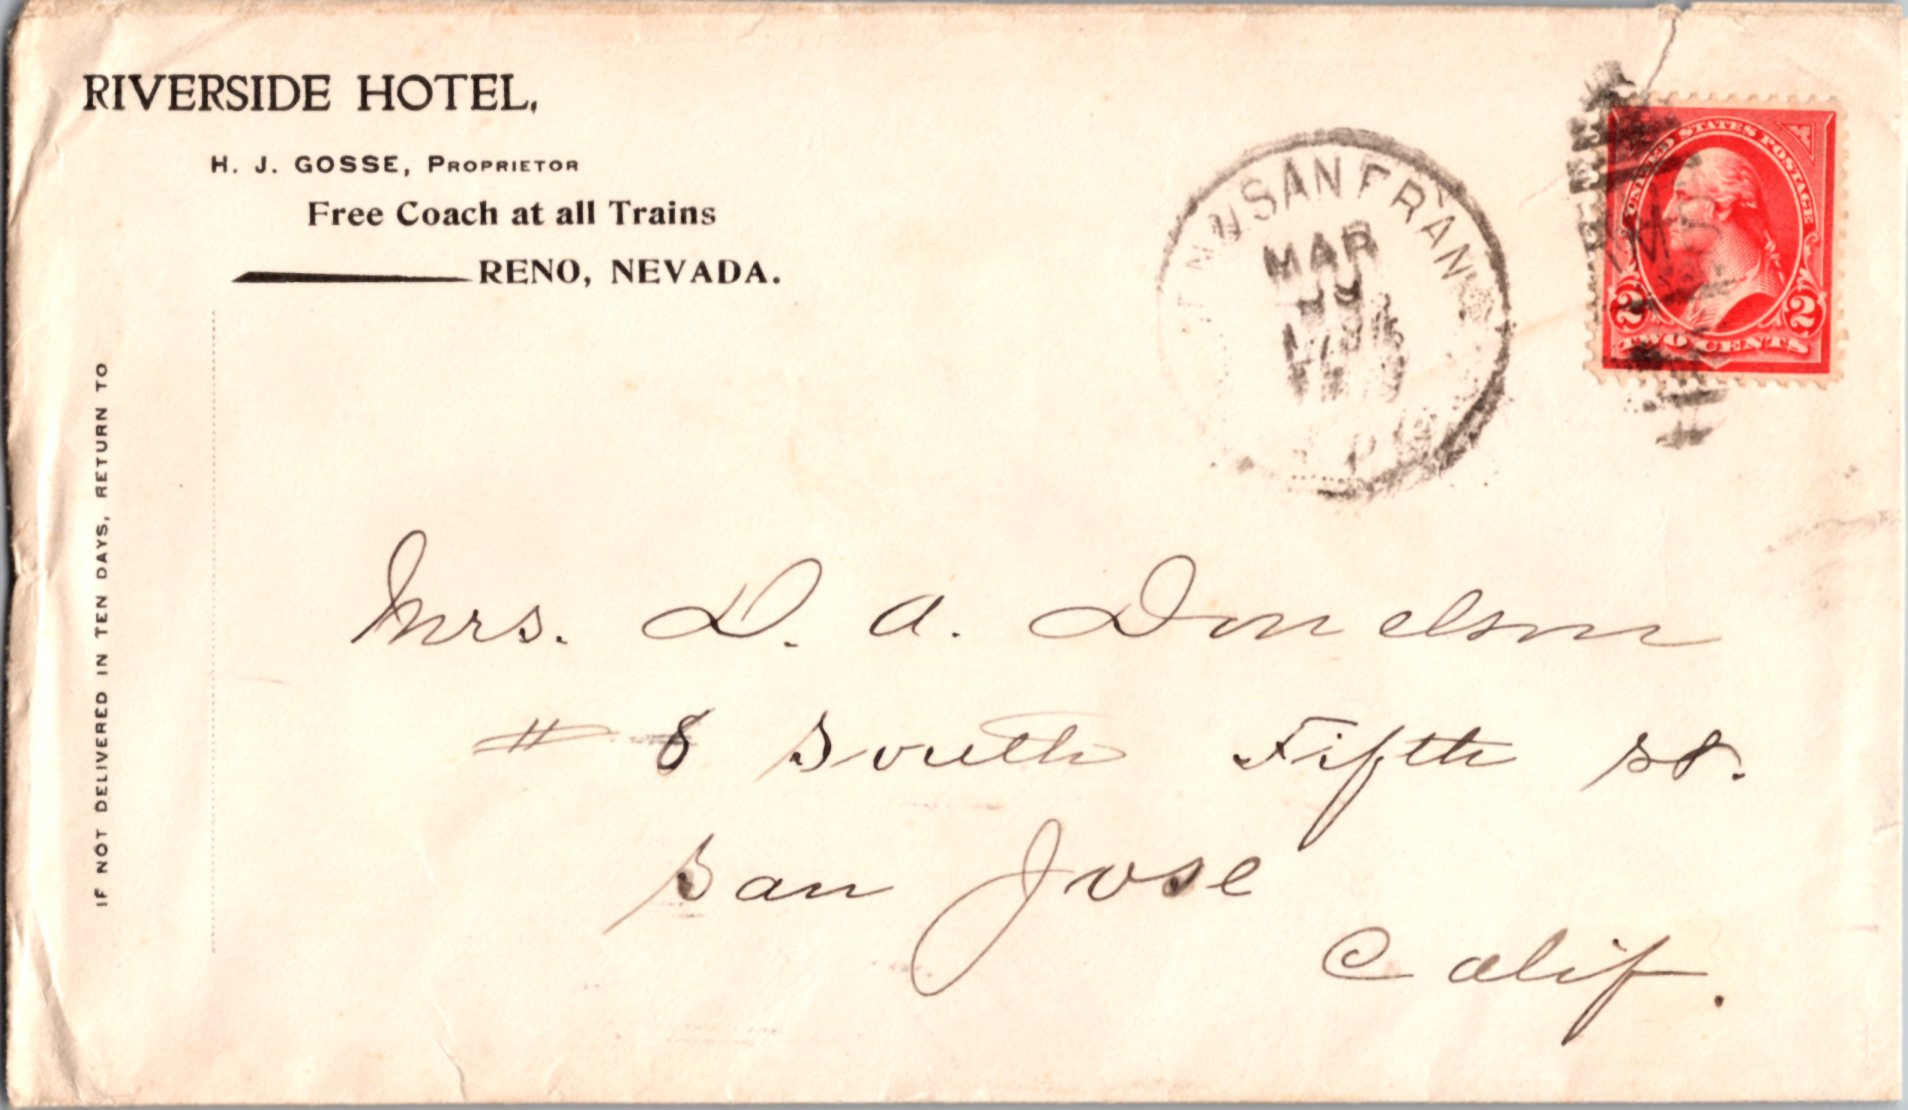 RIVERSIDE HOTEL,
H. J. GOSSE, PROPRIETOR
Free Coach at all Trains
RENO, NEVADA.
IF NOT DELIVERED IN TEN DAYS, RETURN TO
SAN FRAN
MAR
UNITED STATES POSTAGE
2 2
TWO CENTS
Mrs. D. A. Donelson
# 8 South Fifth St.
San Jose
Calif.